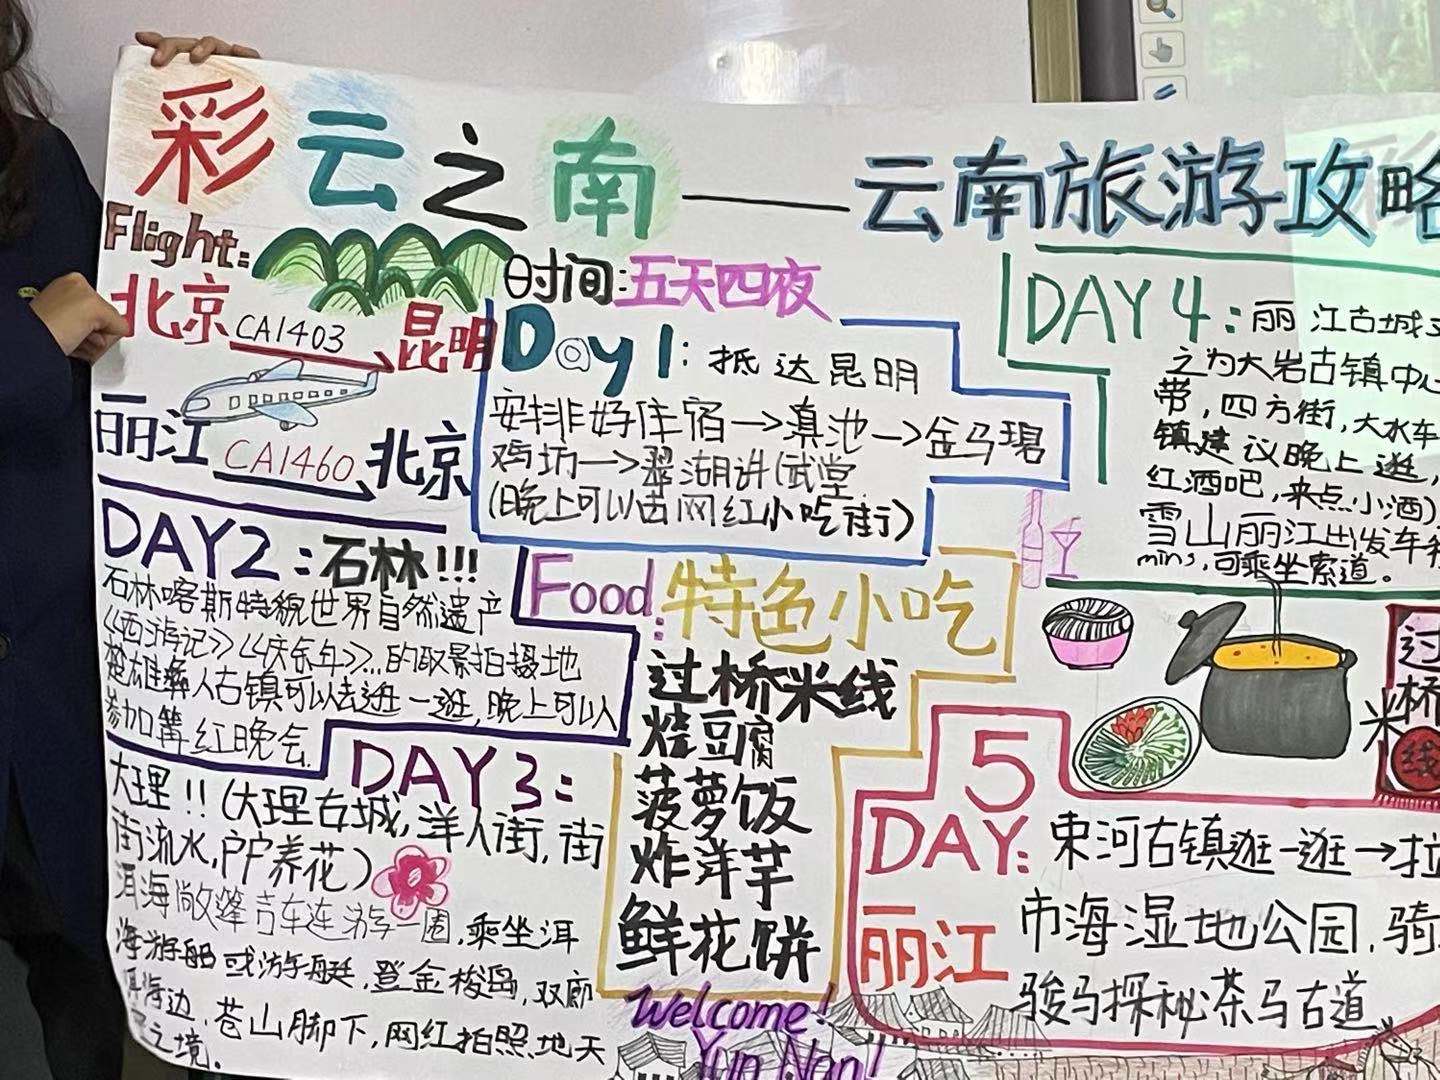 彩云之南——云南旅游攻略
Flight:
北京 CA1403 昆明
丽江 CA1460 北京
时间:五天四夜
Day1: 抵达昆明
安排好住宿→滇池→金马碧
鸡坊→翠湖讲武堂
(晚上可以去网红小吃街)
DAY2:石林!!!
石林喀斯特貌世界自然遗产
《西游记》《庆余年》...的取景拍摄地
楚雄彝人古镇可以去逛一逛,晚上可以
参加篝红晚会.
DAY3:
大理!!(大理古城,洋人街,街
街流水,户户养花)
洱海敞篷吉车连游一圈,乘坐洱
海游船或游艇,登金梭岛,双廊
洱海边,苍山脚下,网红拍照地天
之境.
Food:特色小吃
过桥米线
烧豆腐
菠萝饭
炸洋芋
鲜花饼
Welcome!
Yun Nan!
DAY4:丽江古城
之为大岩古镇中心
带,四方街,大水车
镇建议晚上逛,
红酒吧,来点小酒)
雪山丽江出发车程
mins,可乘坐索道.
过桥
米线
DAY5:束河古镇逛一逛→拉
丽江
市海湿地公园,骑
骏马探秘茶马古道